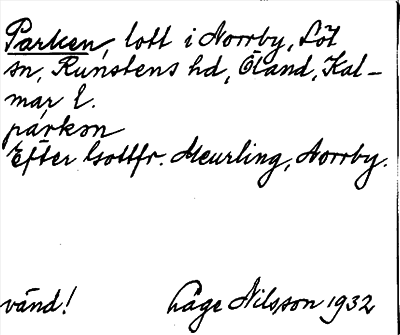 Parken, lott i Norrby, Löt
sn, Runstens hd, Öland, Kal-
mar l.
párkɘn
Efter Gottfr. Meurling, Norrby.
vänd! Lage Nilsson 1932